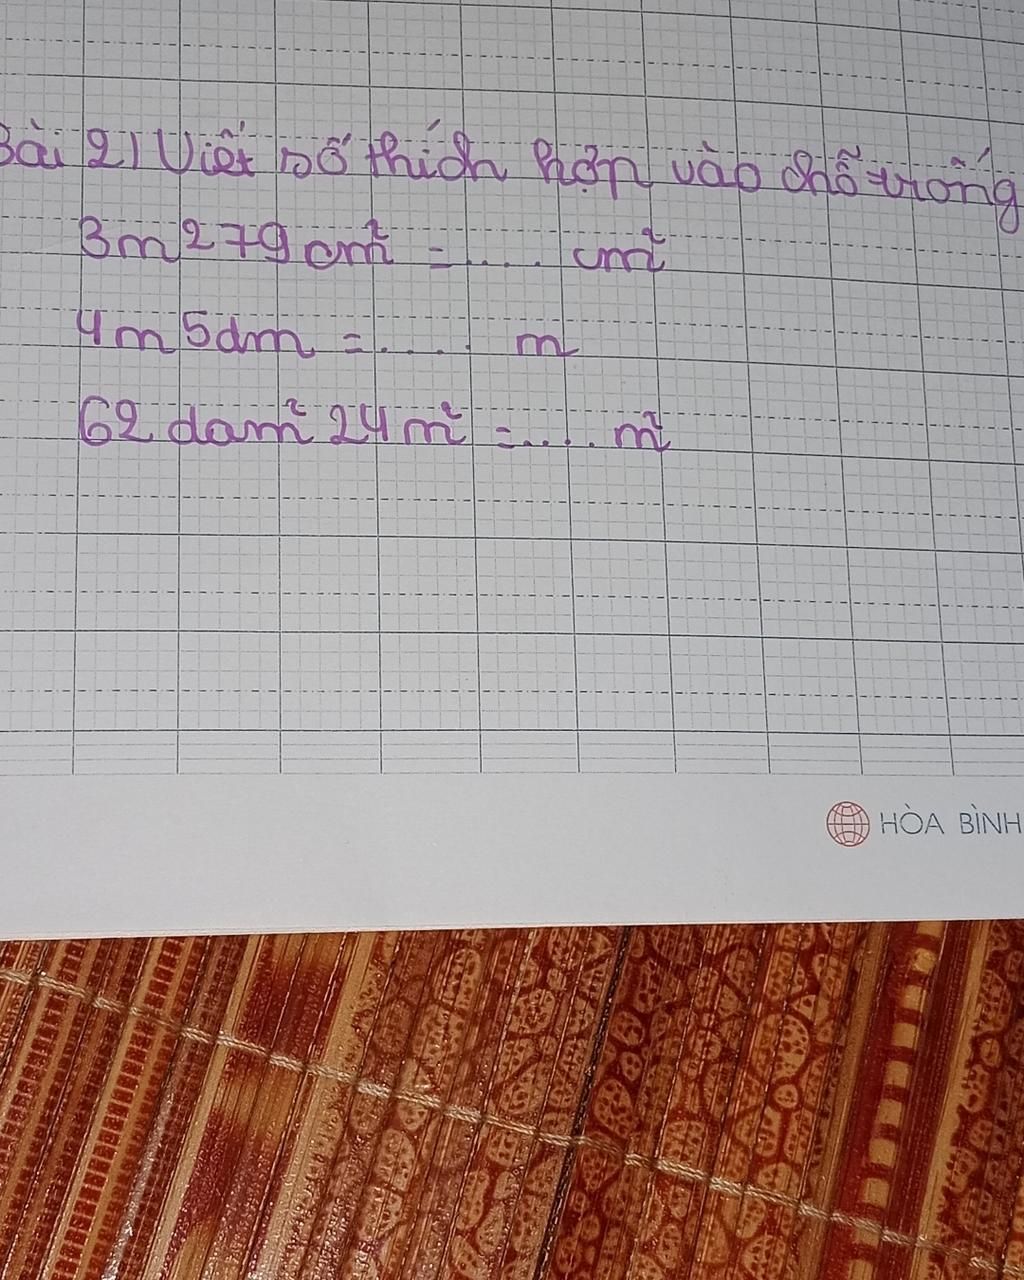 Bài 2) Viết số thích hợp vào chỗ trống
3m² 79cm² = .... cm²
4m 5dm = .... m
62 dam² 24m² = .... m²
HÒA BÌNH